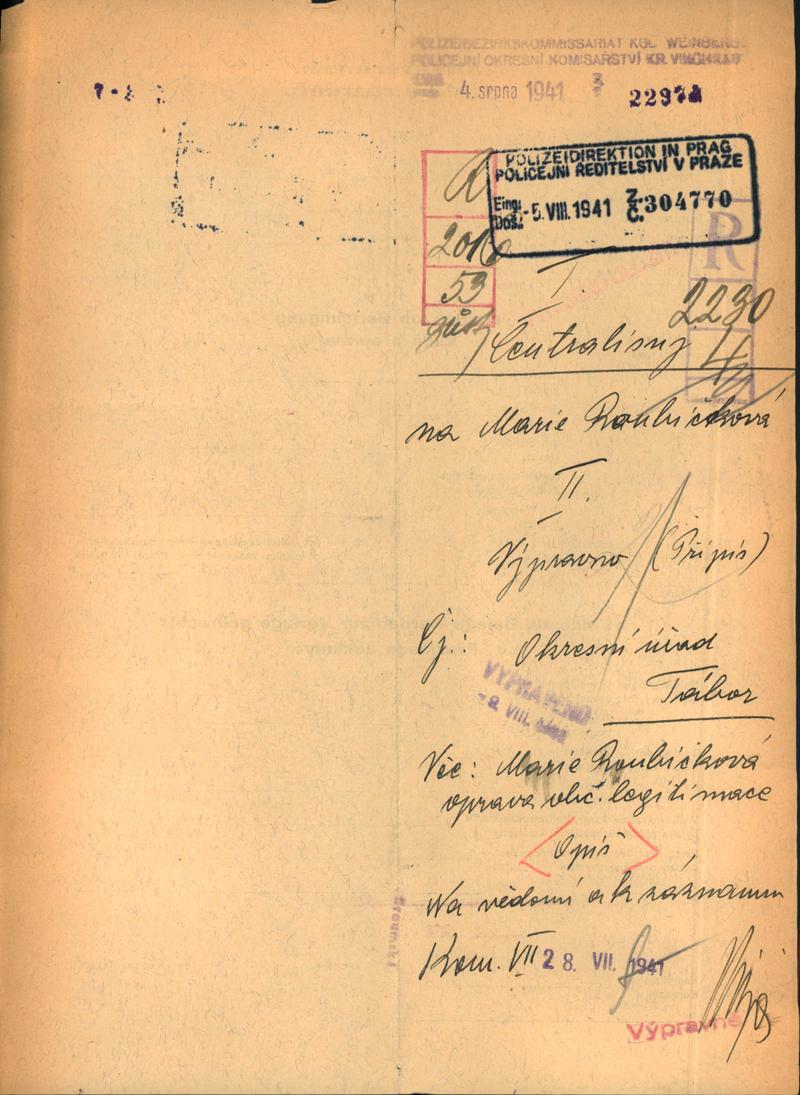 POLIZEIBEZIRKSKOMMISSARIAT KGL. WEINBERGE
POLICEJNÍ OKRESNÍ KOMISAŘSTVÍ KR. VINOHRADY
4. srpna 1941
22974
POLIZEIDIREKTION IN PRAG
POLICEJNÍ ŘEDITELSTVÍ V PRAZE
Eing.
Doš.: -5. VIII. 1941 Z. Č. 304770
R
R
2010
53
I.
2230
4
Centralisuj
na Marie Roubíčková
II.
Výpravno (Přípis)
Čj.: Okresní úřad
Tábor
VYPRAVENO
VIII.
Věc: Marie Roubíčková
oprava obč. legitimace
Opiš
Na vědomí a k záznamu
Kom. VII 28. VII. 1941
Výpravně